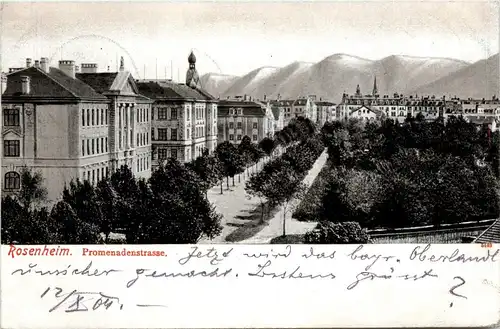 Rosenheim. Promenadenstrasse.
Jetzt wird das bayr. Oberlandl
unsicher gemacht. Bestens grüsst
12/X 04.